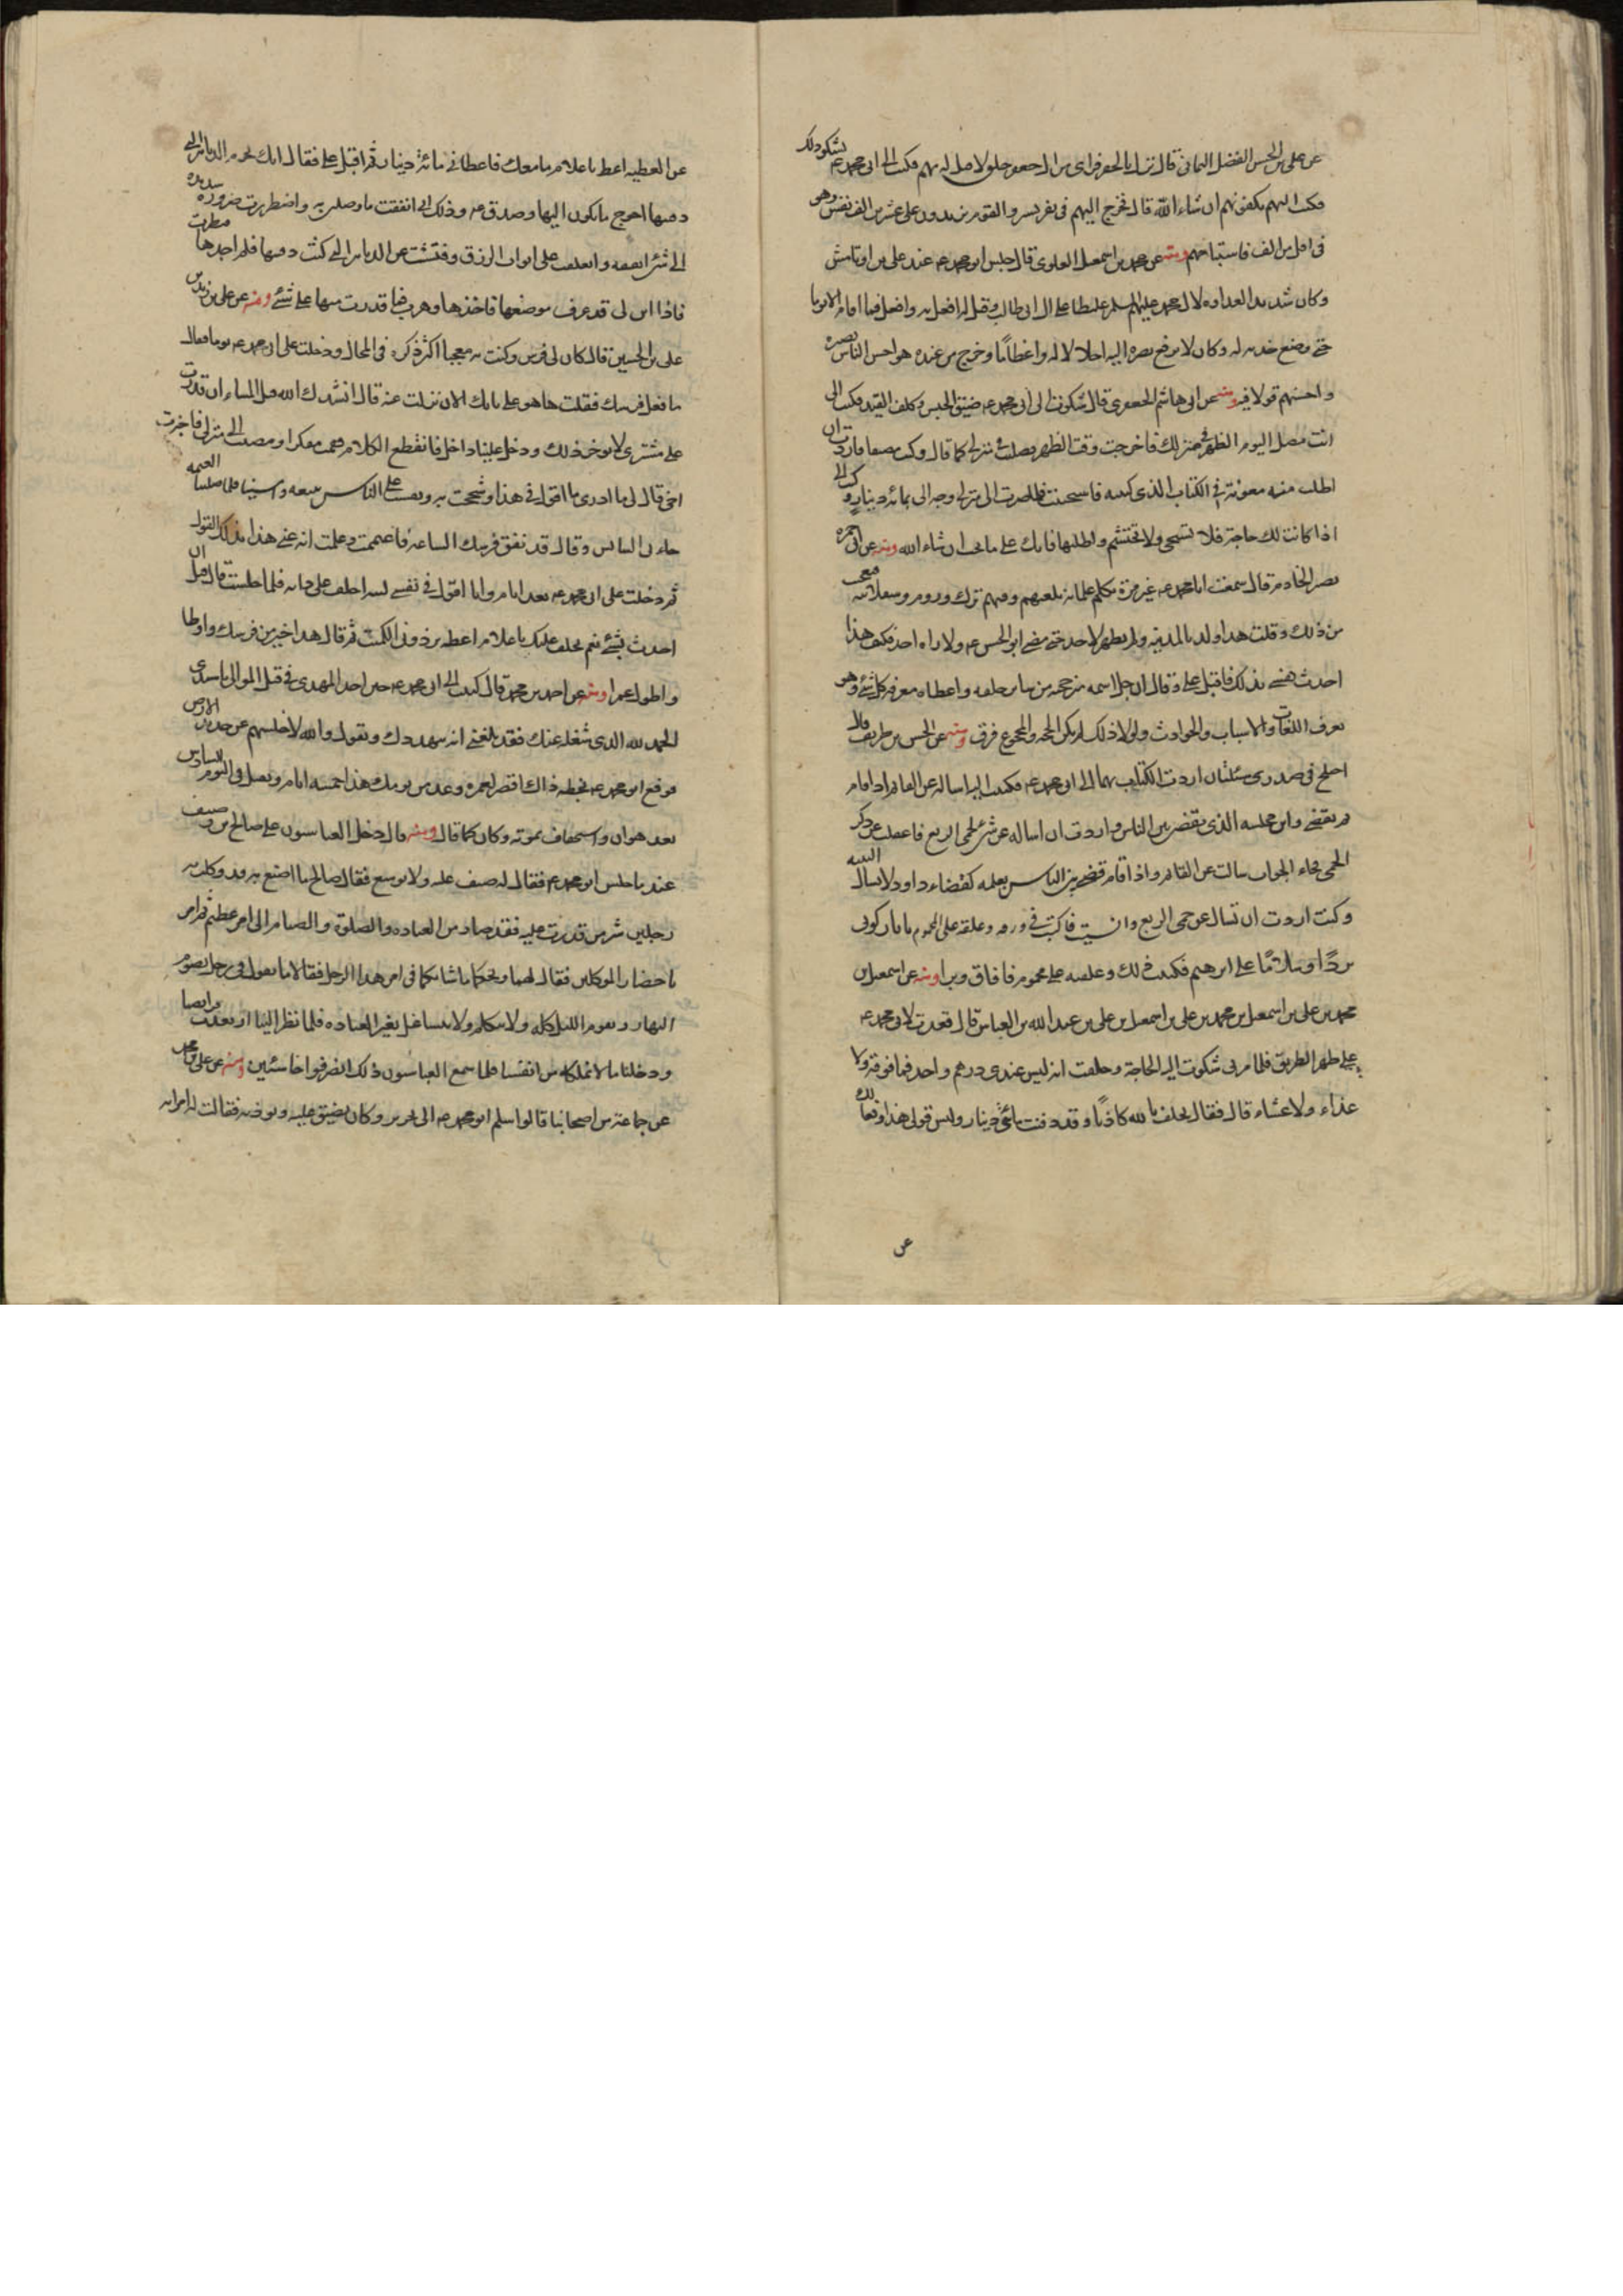 عن علي بن الحسن الفضل اليماني قال نزل بالجعفري من ال جعفر خلق لا قبل له بهم فكتب الى ابي محمد ع يشكو ذلك
فكتب اليهم تكفونهم ان شاء الله قال فخرج اليهم في نفر يسير والقوم يزيدون على عشرين الف نفس وهو
في اقل من الف فاستباحهم ومنه عن محمد بن اسمعيل العلوي قال حبس ابو محمد ع عند علي بن اوتامش
وكان شديد العداوه لال محمد عليهم السلم غليظا على ال ابي طالب وقيل له افعل به وافعل فما اقام الا يوما
حتى وضع خديه له وكان لا يرفع بصره اليه اجلالا له واعظاما وخرج من عنده وهو احسن الناس بصيرة
واحسنهم قولا فيه ومنه عن ابي هاشم الجعفري قال شكوت الى ابي محمد ع ضيق الحبس وكلف القيد فكتب الى
انت مصل اليوم الظهر في منزلك فاخرجت وقت الظهر فصليت في منزلي كما قال وكنت مضيقا فاردت ان
اطلب منه معونة في الكتاب الذي كتبته فاستحييت فلما صرت الى منزلي وجه الى بمائه دينار وكتب الى
اذا كانت لك حاجة فلا تستحي ولا تحتشم واطلبها فانك على ما تحب ان شاء الله ومنه عن ابي حمزة
نصير الخادم قال سمعت ابا محمد ع غير مرة يكلم غلمانه بلغاتهم وفيهم ترك وروم وصقالبه فتعجبت
من ذلك وقلت هذا ولد بالمدينه ولم يظهر لاحد حتى مضى ابو الحسن ع ولا راه احد فكيف هذا
احدث نفسي بذلك فاقبل علي وقال ان الله جل اسمه بين حجته من ساير خلقه واعطاه معرفه كل شئ وهو
يعرف اللغات والاسباب والحوادث ولولا ذلك لم يكن بين الحجه والمحجوج فرق ومنه عن الحسن بن ظريف قال
اختلج في صدري مسئلتان اردت الكتاب بهما الى ابي محمد ع فكتبت اليه اساله عن القائم اذا قام
بم يقضي واين مجلسه الذي يقضي بين الناس واردت ان اساله عن شئ لحمى الربع فاغفلت عن ذكر
الحمى فجاء الجواب سالت عن القائم واذا قام قضى بين الناس بعلمه كقضاء داود لا يسال البينه
وكنت اردت ان تسال عن حمى الربع وانسيت فاكتب في ورقه وعلقه على المحموم يا نار كوني
بردا وسلاما على ابرهيم فكتبت ذلك وعلقته على محموم فافاق وبرا ومنه عن اسمعيل بن
محمد بن علي بن اسمعيل بن محمد بن علي بن اسمعيل بن علي بن عبد الله بن العباس قال قعدت لابي محمد ع
على ظهر الطريق فلما مر بي شكوت اليه الحاجة وحلفت انه ليس عندي درهم واحد فما فوقه ولا
غذاء ولا عشاء قال فقال تحلف بالله كاذبا وقد دفنت مائتي دينار وليس قولي هذا دفعا لك
عن
عن العطيه اعطه يا غلام ما معك فاعطاني مائة دينار ثم اقبل علي فقال انك تحرم الدنانير التي
دفنتها احوج ما تكون اليها وصدق ع وذلك اني انفقت ما وصلني به واضطررت ضرورة شديده
الى شئ انفقه وانغلقت علي ابواب الرزق وفتشت عن الدنانير التي كنت دفنتها فلم اجدها فنظرت
فاذا ابن لي قد عرف موضعها فاخذها وهرب فما قدرت منها على شئ ومنه عن علي بن زيد بن
علي بن الحسين قال كان لي فرس وكنت به معجبا اكثر ذكره في المحال ودخلت على ابي محمد ع يوما فقال
ما فعل فرسك فقلت ها هو على بابك الان نزلت عنه قال استبدل به قبل المساء ان قدرت
على مشترى لا تؤخر ذلك ودخل علينا داخل فانقطع الكلام فقمت مفكرا ومضيت الى منزلي فاخبرت
اخي فقال لي ما ادري ما اقول في هذا وشححت به ونفست على الناس ببيعه وامسينا فلما صلينا العتمه
جاءني السايس وقال قد نفق فرسك الساعة فاغتممت وعلمت انه عنى هذا بذلك القول
ثم دخلت على ابي محمد ع بعد ايام وانا اقول في نفسي ليته اخلف علي دابه فلما جلست قال قبل ان
احدث بشئ نعم نخلف عليك يا غلام اعطه برذوني الكميت ثم قال هذا خير من فرسك واوطا
واطول عمرا ومنه عن احمد بن محمد قال كتبت الى ابي محمد ع حين اخذ المهتدي في قتل الموالي يا سيدي
الحمد لله الذي شغله عنك فقد بلغني انه يتهددك ويقول والله لاخلينهم عن جديد الارض
فوقع ابو محمد ع بخطه ذاك اقصر لعمره وعد من يومك هذا خمسه ايام ويقتل في اليوم السادس
بعد هوان واستخفاف بموته وكان كما قال ومنه قال دخل العباسون على صالح بن وصيف
عند ما حبس ابو محمد ع فقال له ضيق عليه ولا توسع فقال صالح ما اصنع به وقد وكلت به
رجلين شر من قدرت عليه فقد صارا من العباده والصلوة والصيام الى امر عظيم ثم امر
باحضار الموكلين فقال لهما ويحكما ما شانكما في امر هذا الرجل فقالا ما نقول في رجل يصوم
النهار ويقوم الليل كله ولا يتكلم ولا يتشاغل بغير العباده فلما نظر الينا ارتعدت فرايصنا
ودخلنا ما لا نملكه من انفسنا فلما سمع العباسون ذلك انصرفوا خاسئين ومنه عن علي بن محمد
عن جماعة من اصحابنا قالوا سلم ابو محمد ع الى نحرير وكان يضيق عليه ويوذيه فقالت له امراته